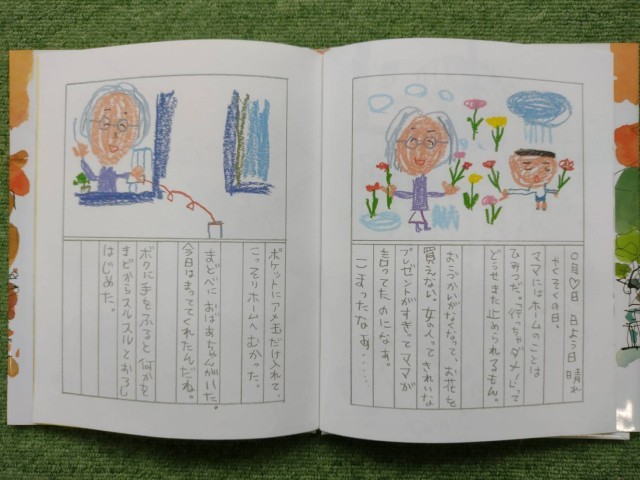 〇月♡日 日よう日 晴れ
やくそくの日。
ママにはホームのことは
ひみつだ。「行っちゃダメ」って
どうせまた止められるもん。
おこづかいがなくなって、お花を
買えない。女の人ってきれいな
プレゼントがすきってママが
言ってたのになぁ。
こまったなぁ……
ポケットにアメ玉だけ入れて、
こっそりホームへむかった。
まどべに おばあちゃんがいた。
今日はまっててくれたんだね。
ボクに手をふると何かを
まどからスルスルとおろし
はじめた。